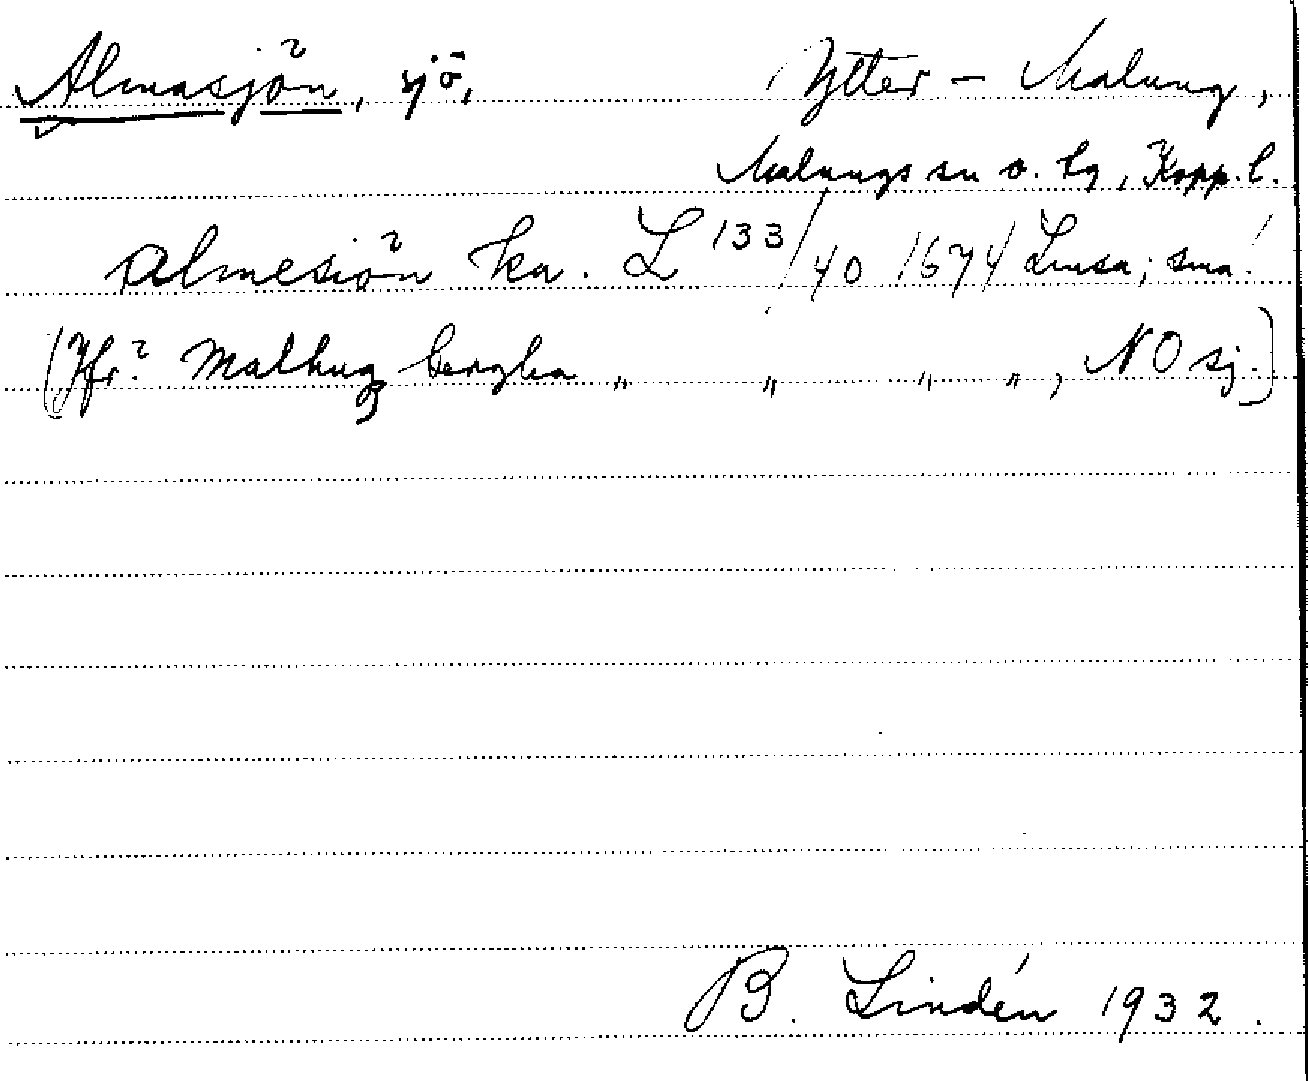 Almasjön, sjö, Ytter-Malung,
Malungs sn o. tg, Kopp. l.
Almesiön ka. L 133/40 1674 Limsa; små!
(Jfr? bergha „ „ „ „, NO sj.)
B. Lindén 1932.